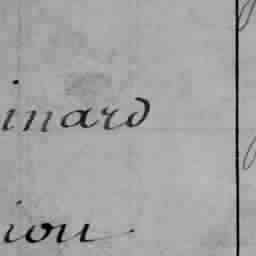 inard
iou